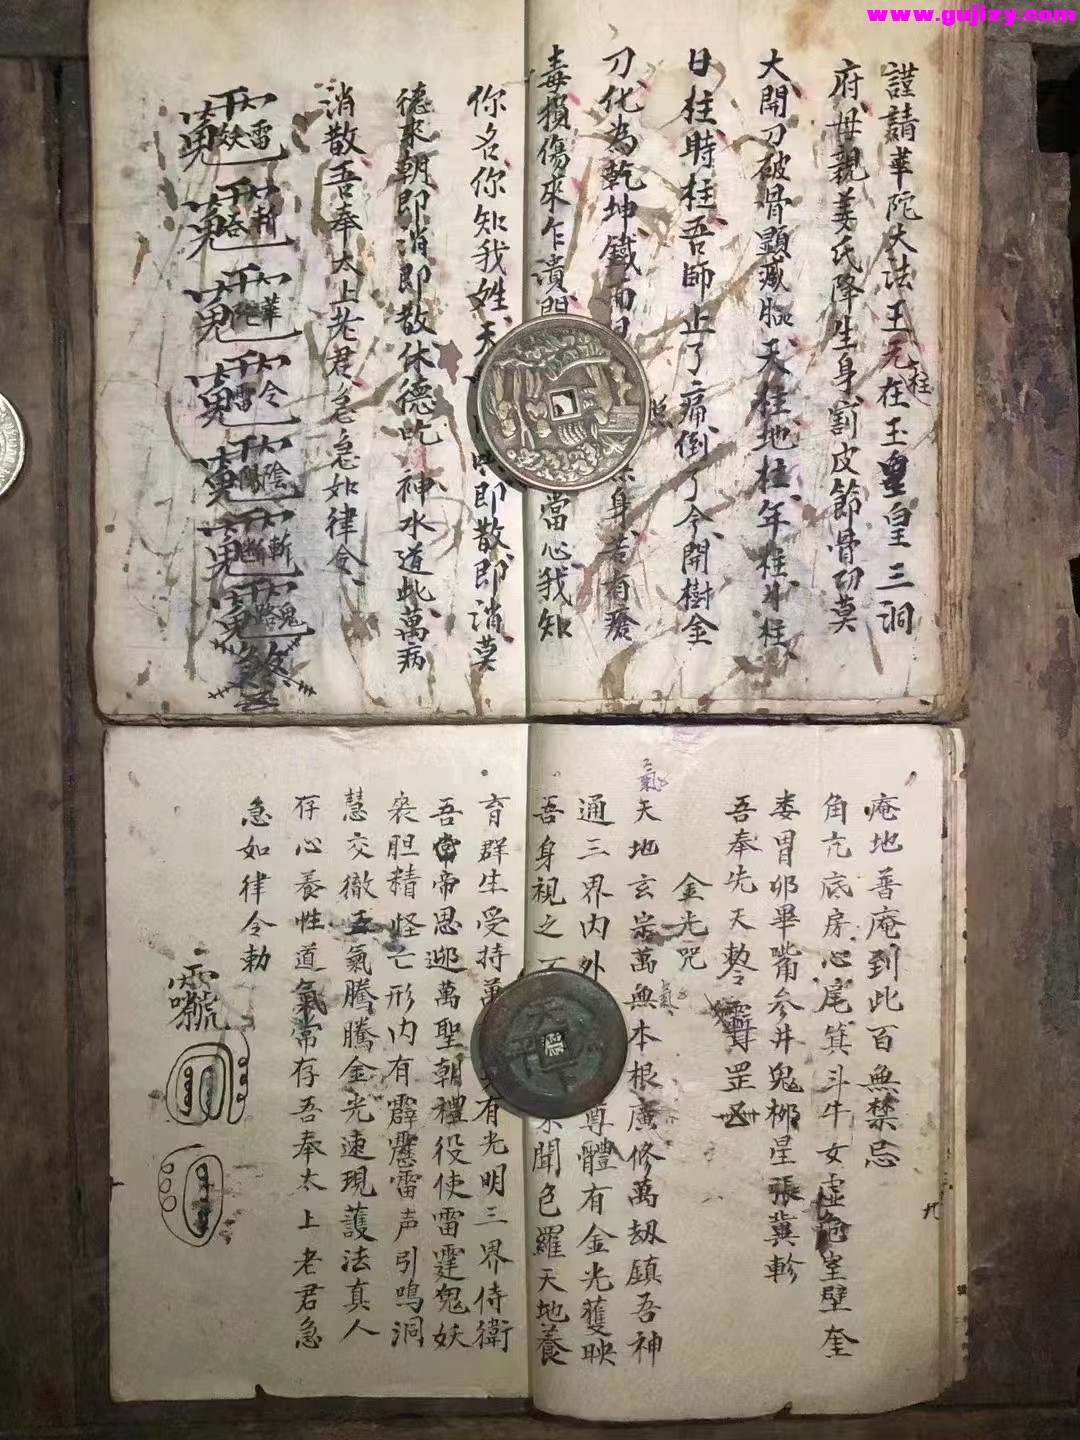 www.gujizy.com
謹請華陀大法王元柱在玉皇皇三洞
府母親姜氏降生身割皮節骨切莫
大開刀破骨顯臟腦天柱地柱年柱斗柱
日柱時柱吾師止了痛倒了令開樹金
刀化為乾坤鐵而
身若有瘡
毒損傷來乍潰
當心我知
你名你知我姓天
即散即消莫
德來朝即消即散休德吃神水道此萬病
消散吾奉太上老君急急如律令
雷
妖
斬
華
令
雷
陰
陽
斬
斷
鬼
路
庵地菩庵到此百無禁忌
角亢底房心尾箕斗牛女虛危室壁奎
娄胃卯畢嘴參井鬼柳星張冀軫
吾奉先天勅令
罡
金光咒
天地玄宗萬無本根廣修萬劫鎮吾神
氣
通三界內外
尊體有金光護映
吾身視之不
聞色羅天地養
育群生受持萬
有光明三界侍衛
吾常帝思迎萬聖朝禮役使雷霆鬼妖
喪胆精怪亡形内有霹靂雷声引鳴洞
慧交徹五氣騰騰金光速現護法真人
存心養性道氣常存吾奉太上老君急
急如律令勅
天
下
平